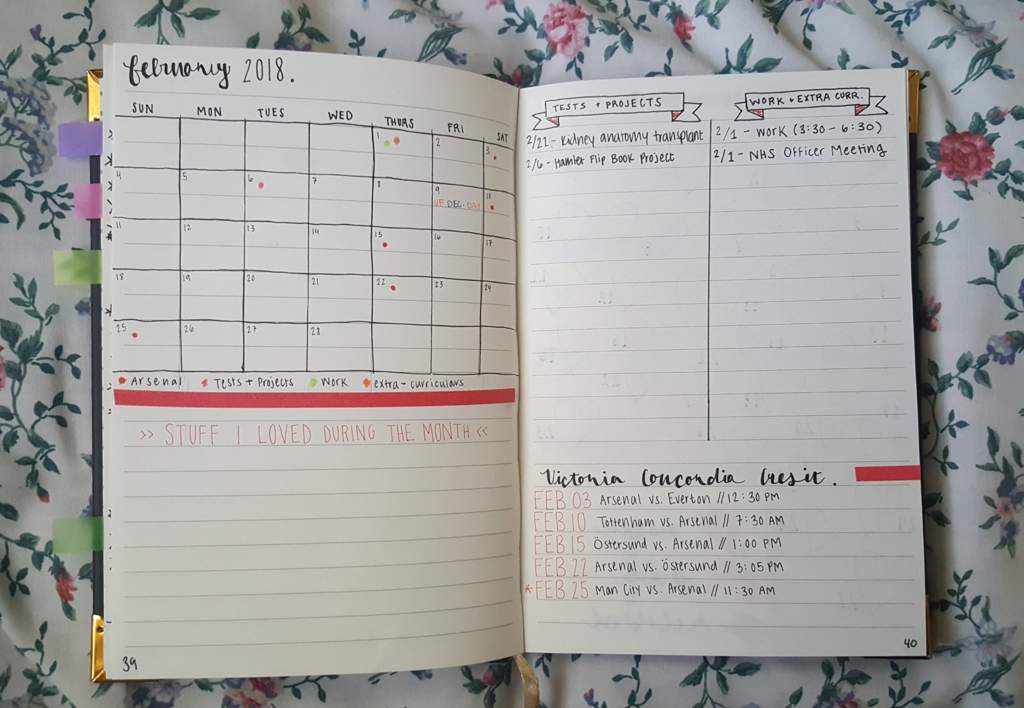 february 2018.
SUN MON TUES WED THURS FRI SAT
1 2 3
4 5 6 7 8 9 10
UF DEC. DAY
11 12 13 14 15 16 17
18 19 20 21 22 23 24
25 26 27 28
Arsenal Tests + Projects Work extra-curriculars
>> STUFF I LOVED DURING THE MONTH <<
39
TESTS + PROJECTS
2/21 - Kidney anatomy transplant
2/6 - Hamlet Flip Book Project
WORK + EXTRA CURR.
2/1 - WORK (3:30 - 6:30)
2/1 - NHS Officer Meeting
Victoria Concordia Cresit.
FEB 03 Arsenal vs. Everton // 12:30 PM
FEB 10 Tottenham vs. Arsenal // 7:30 AM
FEB 15 Östersund vs. Arsenal // 1:00 PM
FEB 22 Arsenal vs. Östersund // 3:05 PM
*FEB 25 Man City vs. Arsenal // 11:30 AM
40